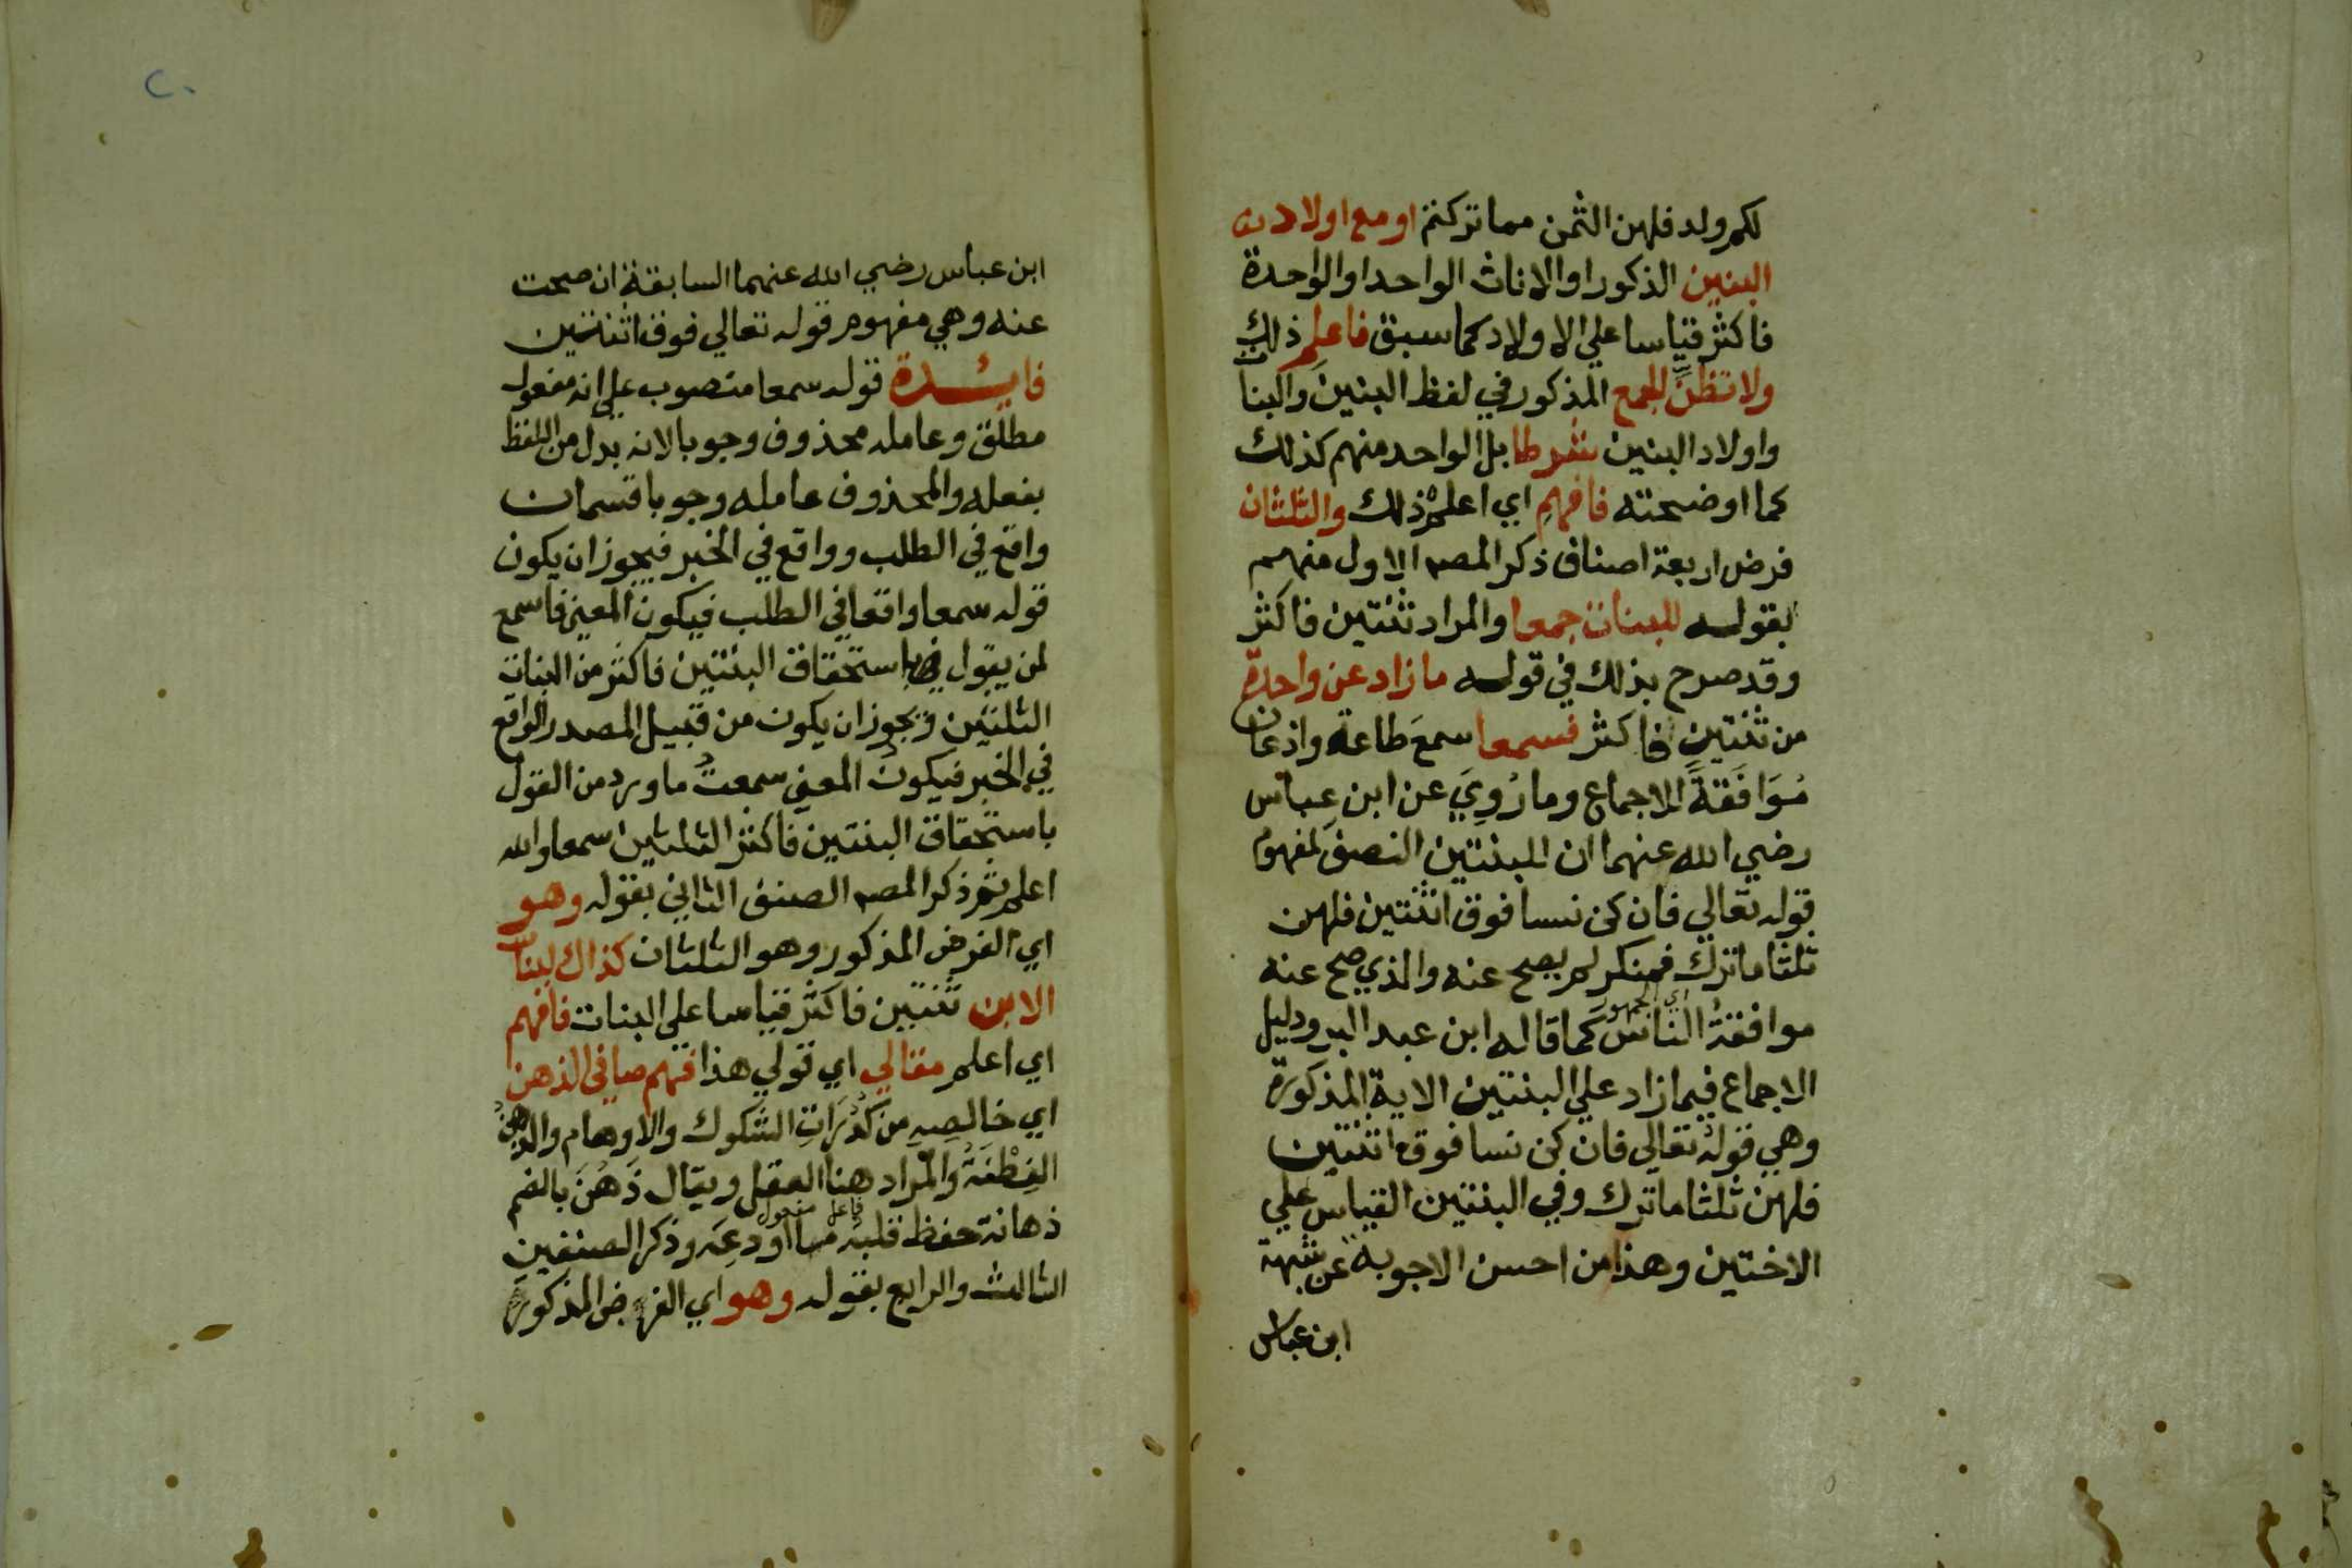 لكم ولد فلهن الثمن مما تركتم او مع اولاد
البنين الذكور او الاناث الواحد او الواحدة
فاكثر قياسا علي الاولاد كما سبق فاعلم ذلك
ولا تظن الجمع المذكور في لفظ البنين والبنات
واولاد البنين شرطا بل الواحد منهم كذلك
كما اوضحته فافهم اي اعلم ذلك والثلثان
فرض اربعة اصناف ذكر المصـ الاول منهم
بقوله للبنات جمعا والمراد ثنتين فاكثر
وقد صرح بذلك في قوله ما زاد عن واحدة
من ثنتين فاكثر فسمعا سمعَ طاعة واذعان
مُوَافَقَةَ الاجماع وما رُوِيَ عن ابن عباس
رضي الله عنهما ان للبنتين النصف لمفهوم
قوله تعالي فان كن نسا فوق اثنتين فلهن
ثلثا ما ترك فمنكر لم يصح عنه والذي صح عنه
موافقةُ الناس كما قاله ابن عبد البر ودليل
اي الجمهور
الاجماع فيما زاد علي البنتين الاية المذكورة
وهي قوله تعالي فان كن نسا فوق اثنتين
فلهن ثلثا ما ترك وفي البنتين القياس علي
الاختين وهذا من احسن الاجوبة عن شبهة
ابن عباس
٢٠
ابن عباس رضي الله عنهما السابقة ان صحت
عنه وهي مفهوم قوله تعالي فوق اثنتين
فايـدة قوله سمعا منصوب علي انه مفعول
مطلق وعامله محذوف وجوبا لانه بدل من اللفظ
بفعله والمحذوف عامله وجوبا قسمان
واقع في الطلب وواقع في الخبر فيجوز ان يكون
قوله سمعا واقعا في الطلب فيكون المعني فاسمع
لمن يقول باستحقاق البنتين فاكثر من البنات
الثلثين ويجوز ان يكون من قبيل المصدر الواقع
في الخبر فيكون المعني سمعتُ ما ورد من القول
باستحقاق البنتين فاكثر الثلثين سمعا والله
اعلم ثم ذكر المصـ الصنف الثاني بقوله وهو
اي الفرض المذكور وهو الثلثان كذاك لبنات
الابن ثنتين فاكثر قياسا علي البنات فافهم
اي اعلم مقالي اي قولي هذا فهم صافي الذهن
اي خالصِهِ من كَدُرَاتِ الشكوك والاوهام والذهنُ
الفِطْنَةُ والمراد هنا العقل ويقال ذَهُنَ بالضم
ذهانة حفظ قلبُه ما اودعِه وذكر الصنفين
فاعل مفعول
الثالث والرابع بقوله وهو اي الفرض المذكور